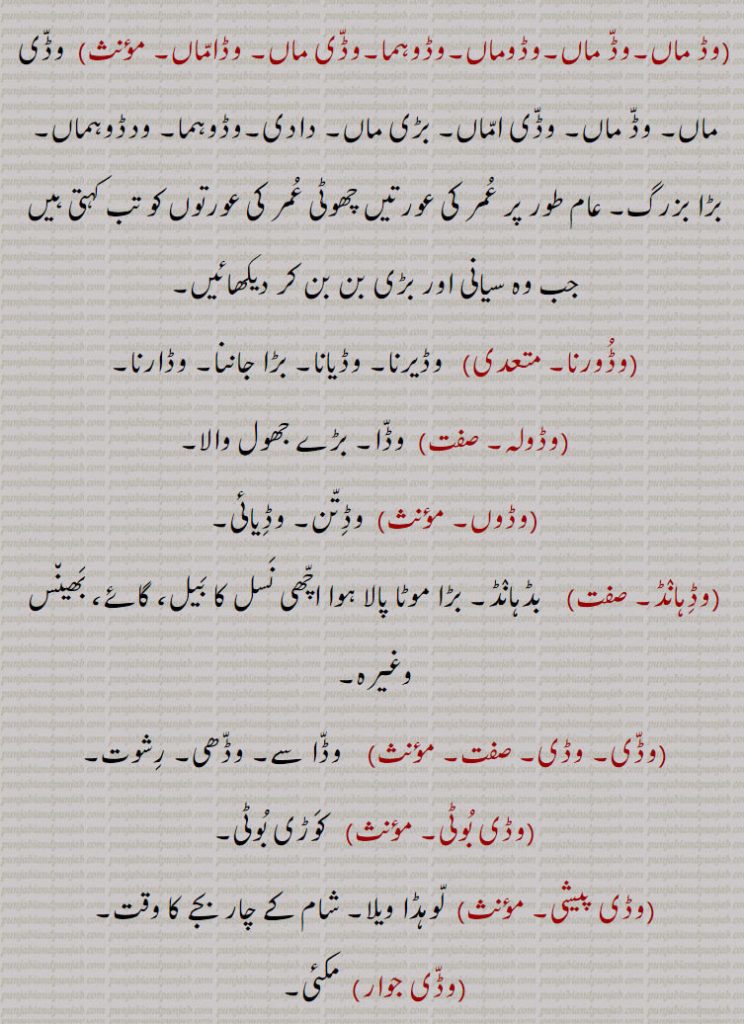 (وڈ ماں۔ وڈّ ماں۔ وڈوماں۔ وڈوہما۔ وڈّی ماں۔ وڈامّاں۔ مؤنث) وڈّی
ماں۔ وڈّ ماں۔ وڈّی امّاں۔ بڑی ماں۔ دادی۔ وڈوہما۔ ودڈوہماں۔
بڑا بزرگ۔ عام طور پر عُمر کی عورتیں چھوٹی عُمر کی عورتوں کو تب کہتی ہیں
جب وہ سیانی اور بڑی بن بن کر دیکھائیں۔
(وڈُورنا۔ متعدی) وڈیرنا۔ وڈیانا۔ بڑا جاننا۔ وڈارنا۔
(وڈولہ۔ صفت) وڈّا۔ بڑے جھول والا۔
(وڈوں۔ مؤنث) وڈِتّن۔ وڈِیائی۔
(وڈِہانْڈ۔ صفت) بڈہانْڈ۔ بڑا موٹا پالا ہوا اچّھی نَسل کا بَیل، گائے، بَھینْس
وغیرہ۔
(وڈّی۔ وڈی۔ صفت۔ مؤنث) وڈّا سے۔ وڈّھی۔ رِشوت۔
(وڈی بُوٹی۔ مؤنث) کَوڑی بُوٹی۔
(وڈی پیشی۔ مؤنث) لَوہڈا ویلا۔ شام کے چار بجے کا وقت۔
(وڈّی جوار) مکئی۔